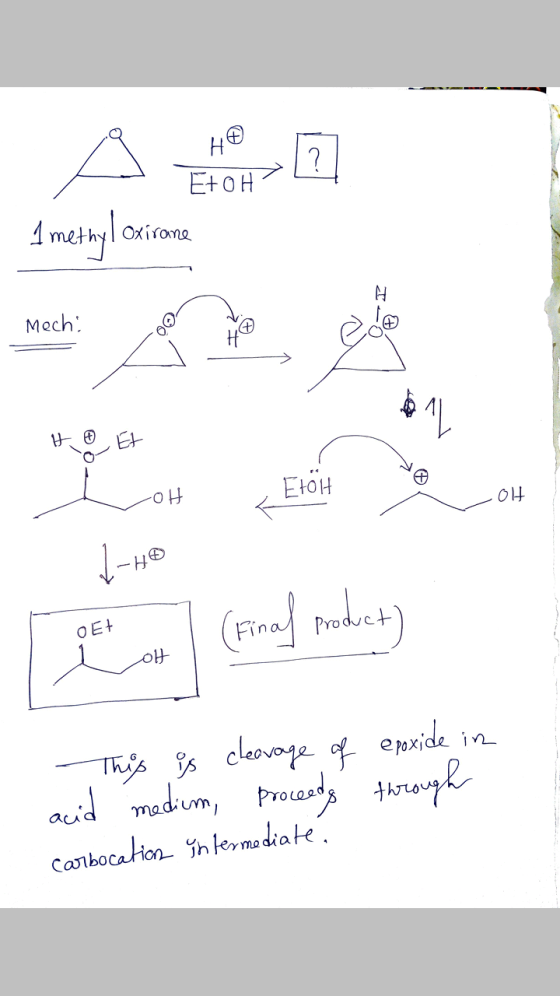 O
H⊕
EtOH
?
1 methyl Oxirane
Mech:
O
H⊕
H
O⊕
H ⊕ Et
O
OH
EtÖH
⊕
OH
-H⊕
OEt
OH
(Final product)
This is cleavage of epoxide in
acid medium, proceeds through
carbocation intermediate.